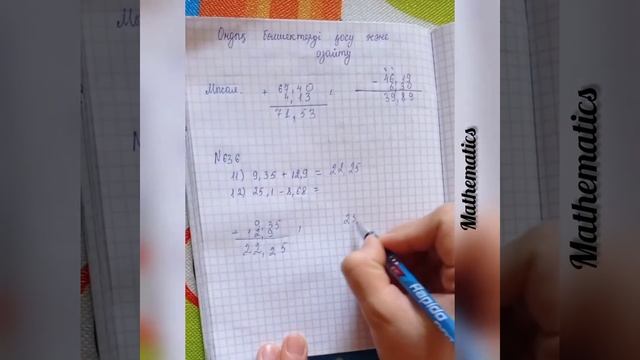 Ондық бөлшектерді қосу және
азайту
Мысал.
+ 67,40
4,13
71,53
,
- 46,19
6,30
39,89
N636
11) 9,35 + 12,9 = 22,25
12) 25,1 - 8,68 =
+ 9,35
12,9
22,25
,
25
Rapida
Mathematics
Mathematics